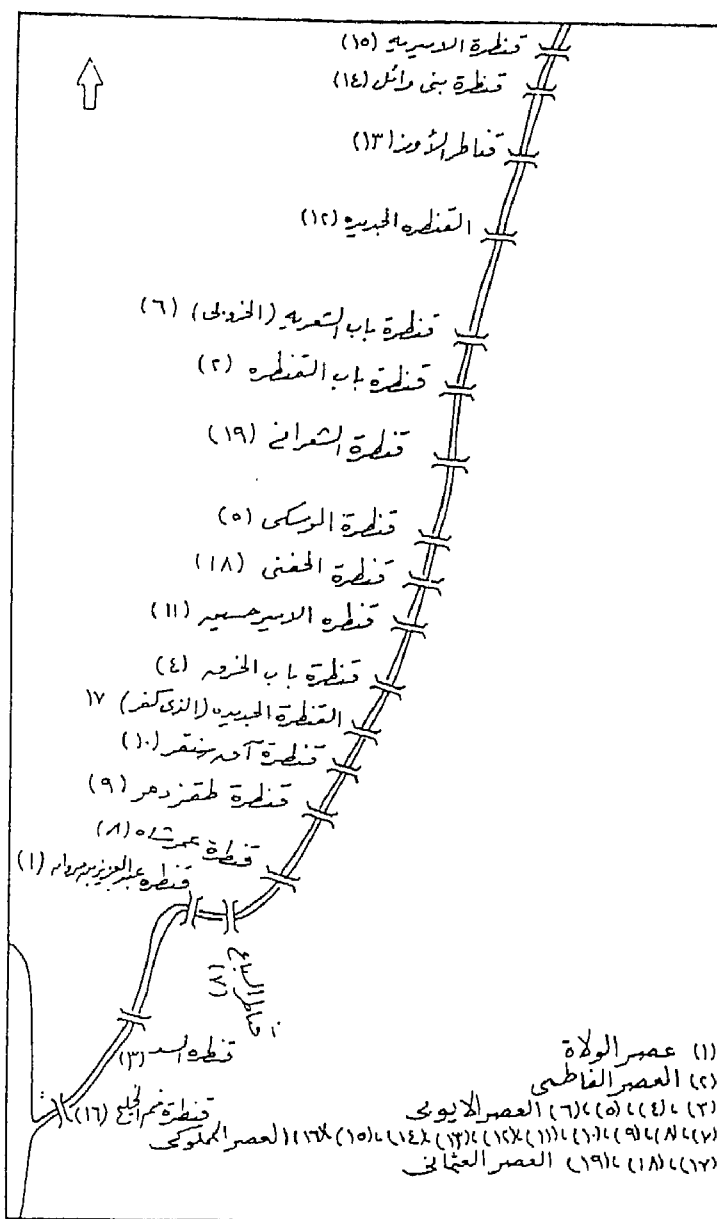 قنطرة الاميريه (١٥)
قنطرة بنى وائل (١٤)
قناطر الأوز (١٣)
القنطره الجديده (١٢)
قنطرة باب الشعريه (الخروبى) (٦)
قنطرة باب القنطره (٢)
قنطرة الشعرانى (١٩)
قنطرة الموسكى (٥)
قنطرة الحفنى (١٨)
قنطره الامير حسين (١١)
قنطرة باب الخرق (٤)
القنطرة الجديده (الذى كفر) ١٧
قنطرة آق سنقر (١٠)
قنطرة طقزدمر (٩)
قنطرة عمر شاه (٨)
قنطره عبد العزيز بن مروان (١)
قناطر السباع
(٧)
قنطره السد (٣)
قنطرة فم الخليج (١٦)
(١) عصر الولاة
(٢) العصر الفاطمى
(٣) ، (٤) ، (٥) ، (٦) العصر الايوبى
(٧) ، (٨) ، (٩) ، (١٠) ، (١١) ، (١٢) ، (١٣) ، (١٤) ، (١٥) ، (١٦) العصر المملوكى
(١٧) ، (١٨) ، (١٩) العصر العثمانى